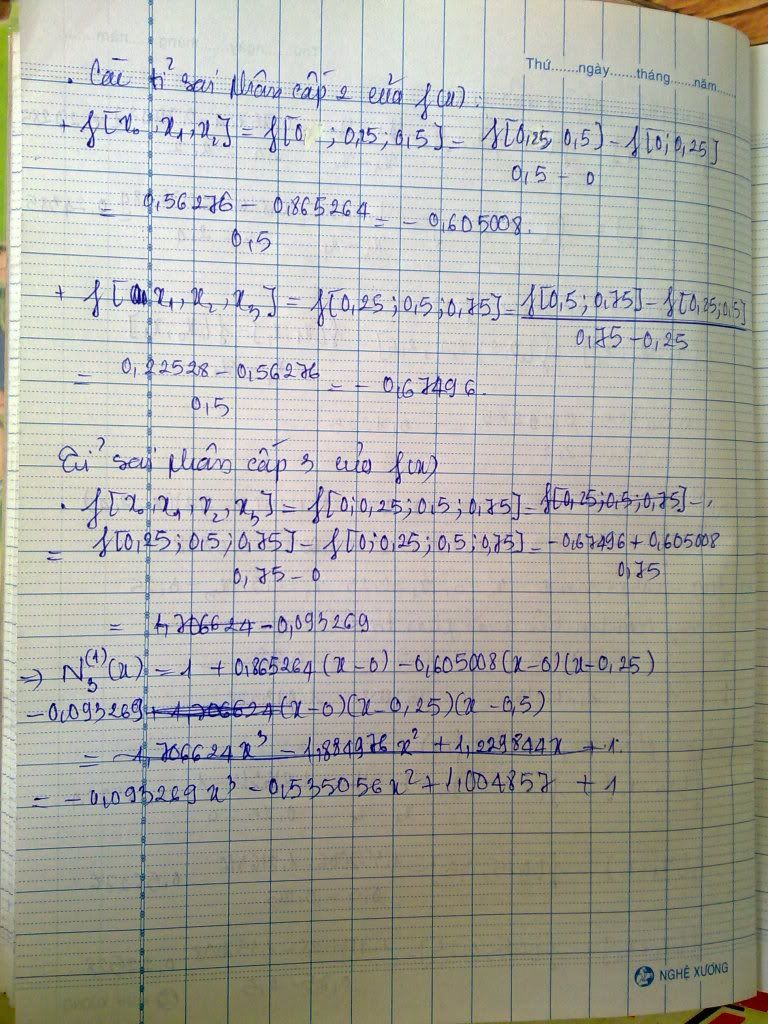 Thứ.......ngày.......tháng......năm......
. Các tỉ sai phân cấp 2 của f(x) :
+ f[x₀, x₁, x₂] = f[0 ; 0,25 ; 0,5] = (f[0,25, 0,5] - f[0; 0,25]) / (0,5 - 0)
= (0,56276 - 0,865264) / 0,5 = - 0,605008.
+ f[x₁, x₂, x₃] = f[0,25 ; 0,5 ; 0,75] = (f[0,5 ; 0,75] - f[0,25; 0,5]) / (0,75 - 0,25)
= (0,22528 - 0,56276) / 0,5 = - 0,67496.
Tỉ sai phân cấp 3 của f(x)
. f[x₀, x₁, x₂, x₃] = f[0; 0,25; 0,5; 0,75] = f[0,25; 0,5; 0,75] -
= (f[0,25 ; 0,5 ; 0,75] - f[0; 0,25; 0,5; 0,75]) / (0,75 - 0) = (-0,67496 + 0,605008) / 0,75
= 1,706624 - 0,093269
⇒ N₃⁽¹⁾(x) = 1 + 0,865264 (x-0) - 0,605008 (x-0)(x-0,25)
- 0,093269 + 1,706624 (x-0)(x-0,25)(x-0,5)
= 1,706624x³ - 1,884976x² + 1,229844x + 1.
= - 0,093269x³ - 0,535056x² + 1,004857 + 1
NGHỆ XƯƠNG